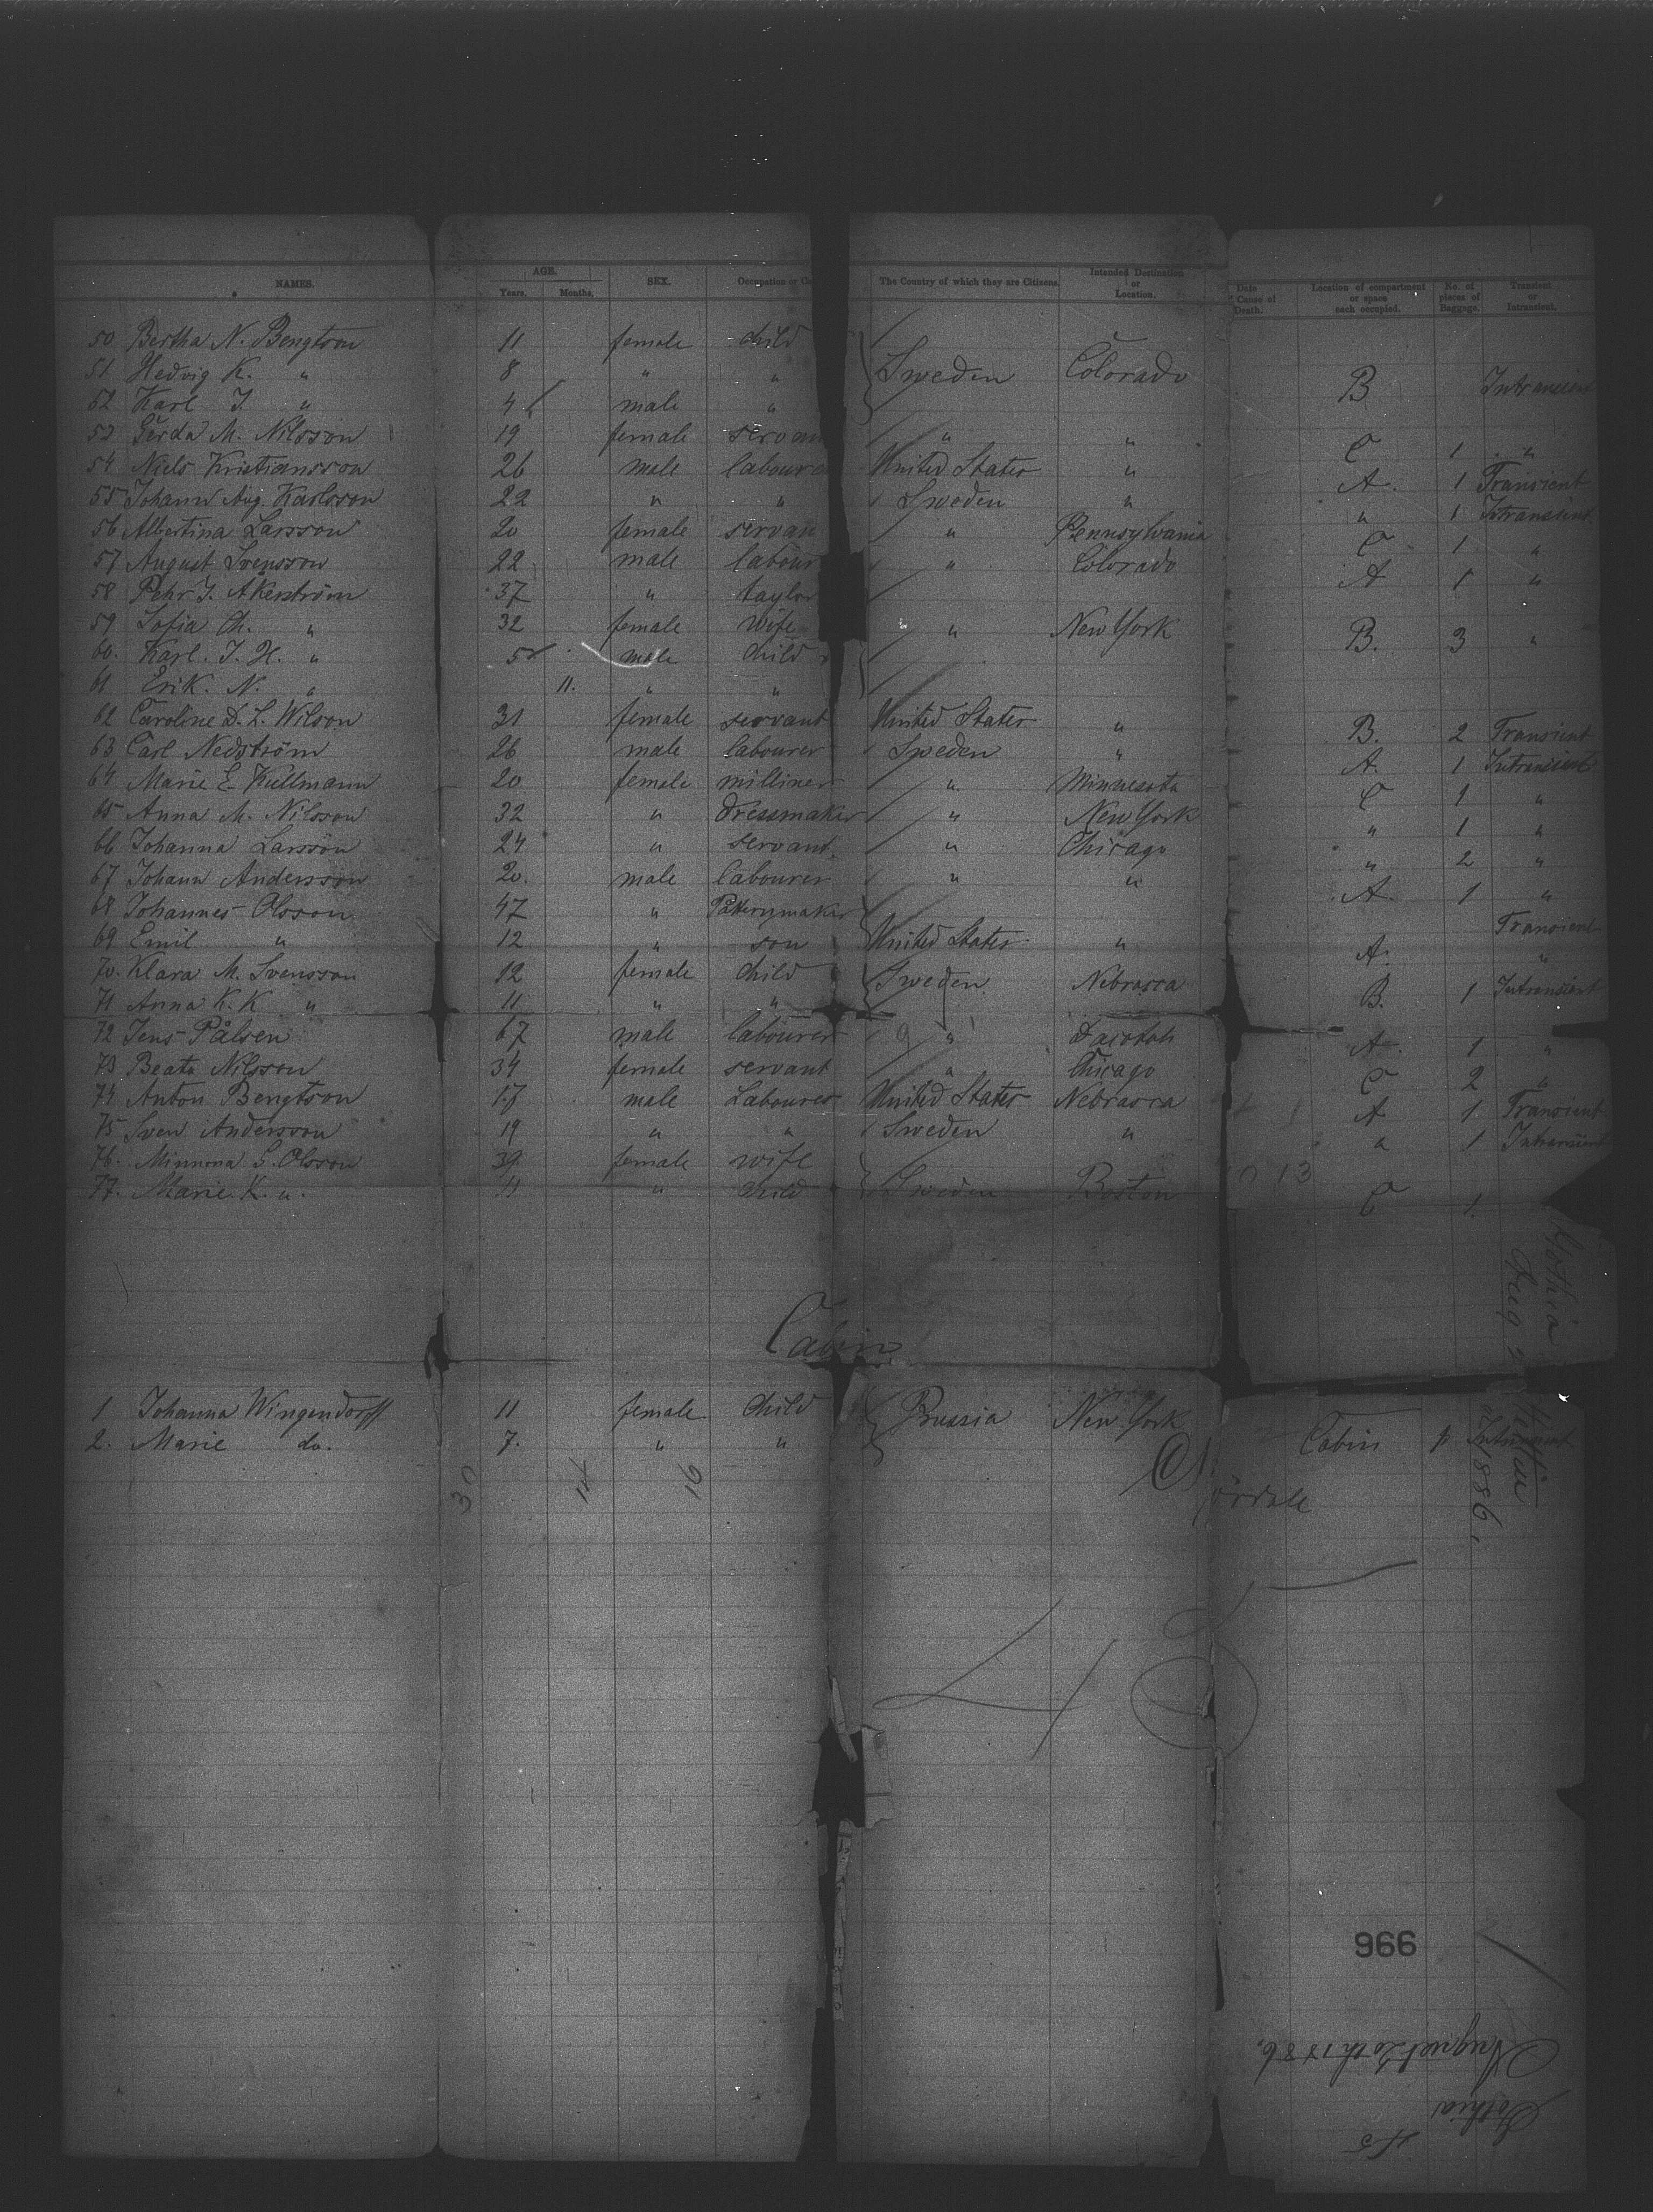 NAMES. AGE. Years. Months. SEX. Occupation or The Country of which they are Citizens. Intended Destination or Location. Date Cause of Death. Location of compartment or space each occupied. No. of pieces of Baggage. Transient or Intransient.
50 Bertha N. Bengtson 11 female child
51 Hedvig K. " 8 " " Sweden Colorado B Intransient
52 Karl J. " 4 male "
53 Gerda M. Nilsson 19 female servan " " C 1 "
54 Niels Kristiansson 26 male laboure United States " A. 1 Transient
55 Johann Aug. Karlsson 22 " " Sweden " " 1 Intransient
56 Albertina Larsson 20 female servan " Pennsylvania C 1 "
57 August Svensson 22 male labour " Colorado A 1 "
58 Pehr J. Akerström 37 " taylor
59 Sofia Ch. " 32 female wife " New York B. 3 "
60. Karl. J. H. " 5 male child
61 Erik. N. " 11. " "
62 Caroline D. L. Wilson 31 female servant United States " B. 2 Transient
63 Carl Nedström 26 male labourer Sweden " A. 1 Intransient
64 Marie E. Kullmann 20 female milliner " Minnesota C 1 "
65 Anna M. Nilsson 32 " dressmaker " New York " 1 "
66 Johanna Larsson 24 " servant. " Chicago " 2 "
67 Johann Andersson 20. male labourer " " A. 1 "
68 Johannes Olsson 47 " Patternmaker Transient
69 Emil " 12 " son United States " A. "
70. Klara M. Svensson 12 female child Sweden Nebrasca B. 1 Intransient
71 Anna K. K " 11 " "
72 Jens Pålsen 67 male labourer " Dacotah A. 1 "
73 Beata Nilsson 34 female servant " Chicago C 2 "
74 Anton Bengtson 17 male Labourer United States Nebrasca A 1 Transient
75 Sven Andersson 19 " " Sweden " " 1 Intransient
76. Minnona S. Olsson 39 female wife
77. Marie K. " 11 " child Sweden Boston C 1.
13
Cabin
1 Johanna Wingendorff 11 female child Prussia New York Cabin Intransient
2. Marie do. 7. " "
30 14 16
Gothia
1886.
966
August 20th 1886.
Gothia